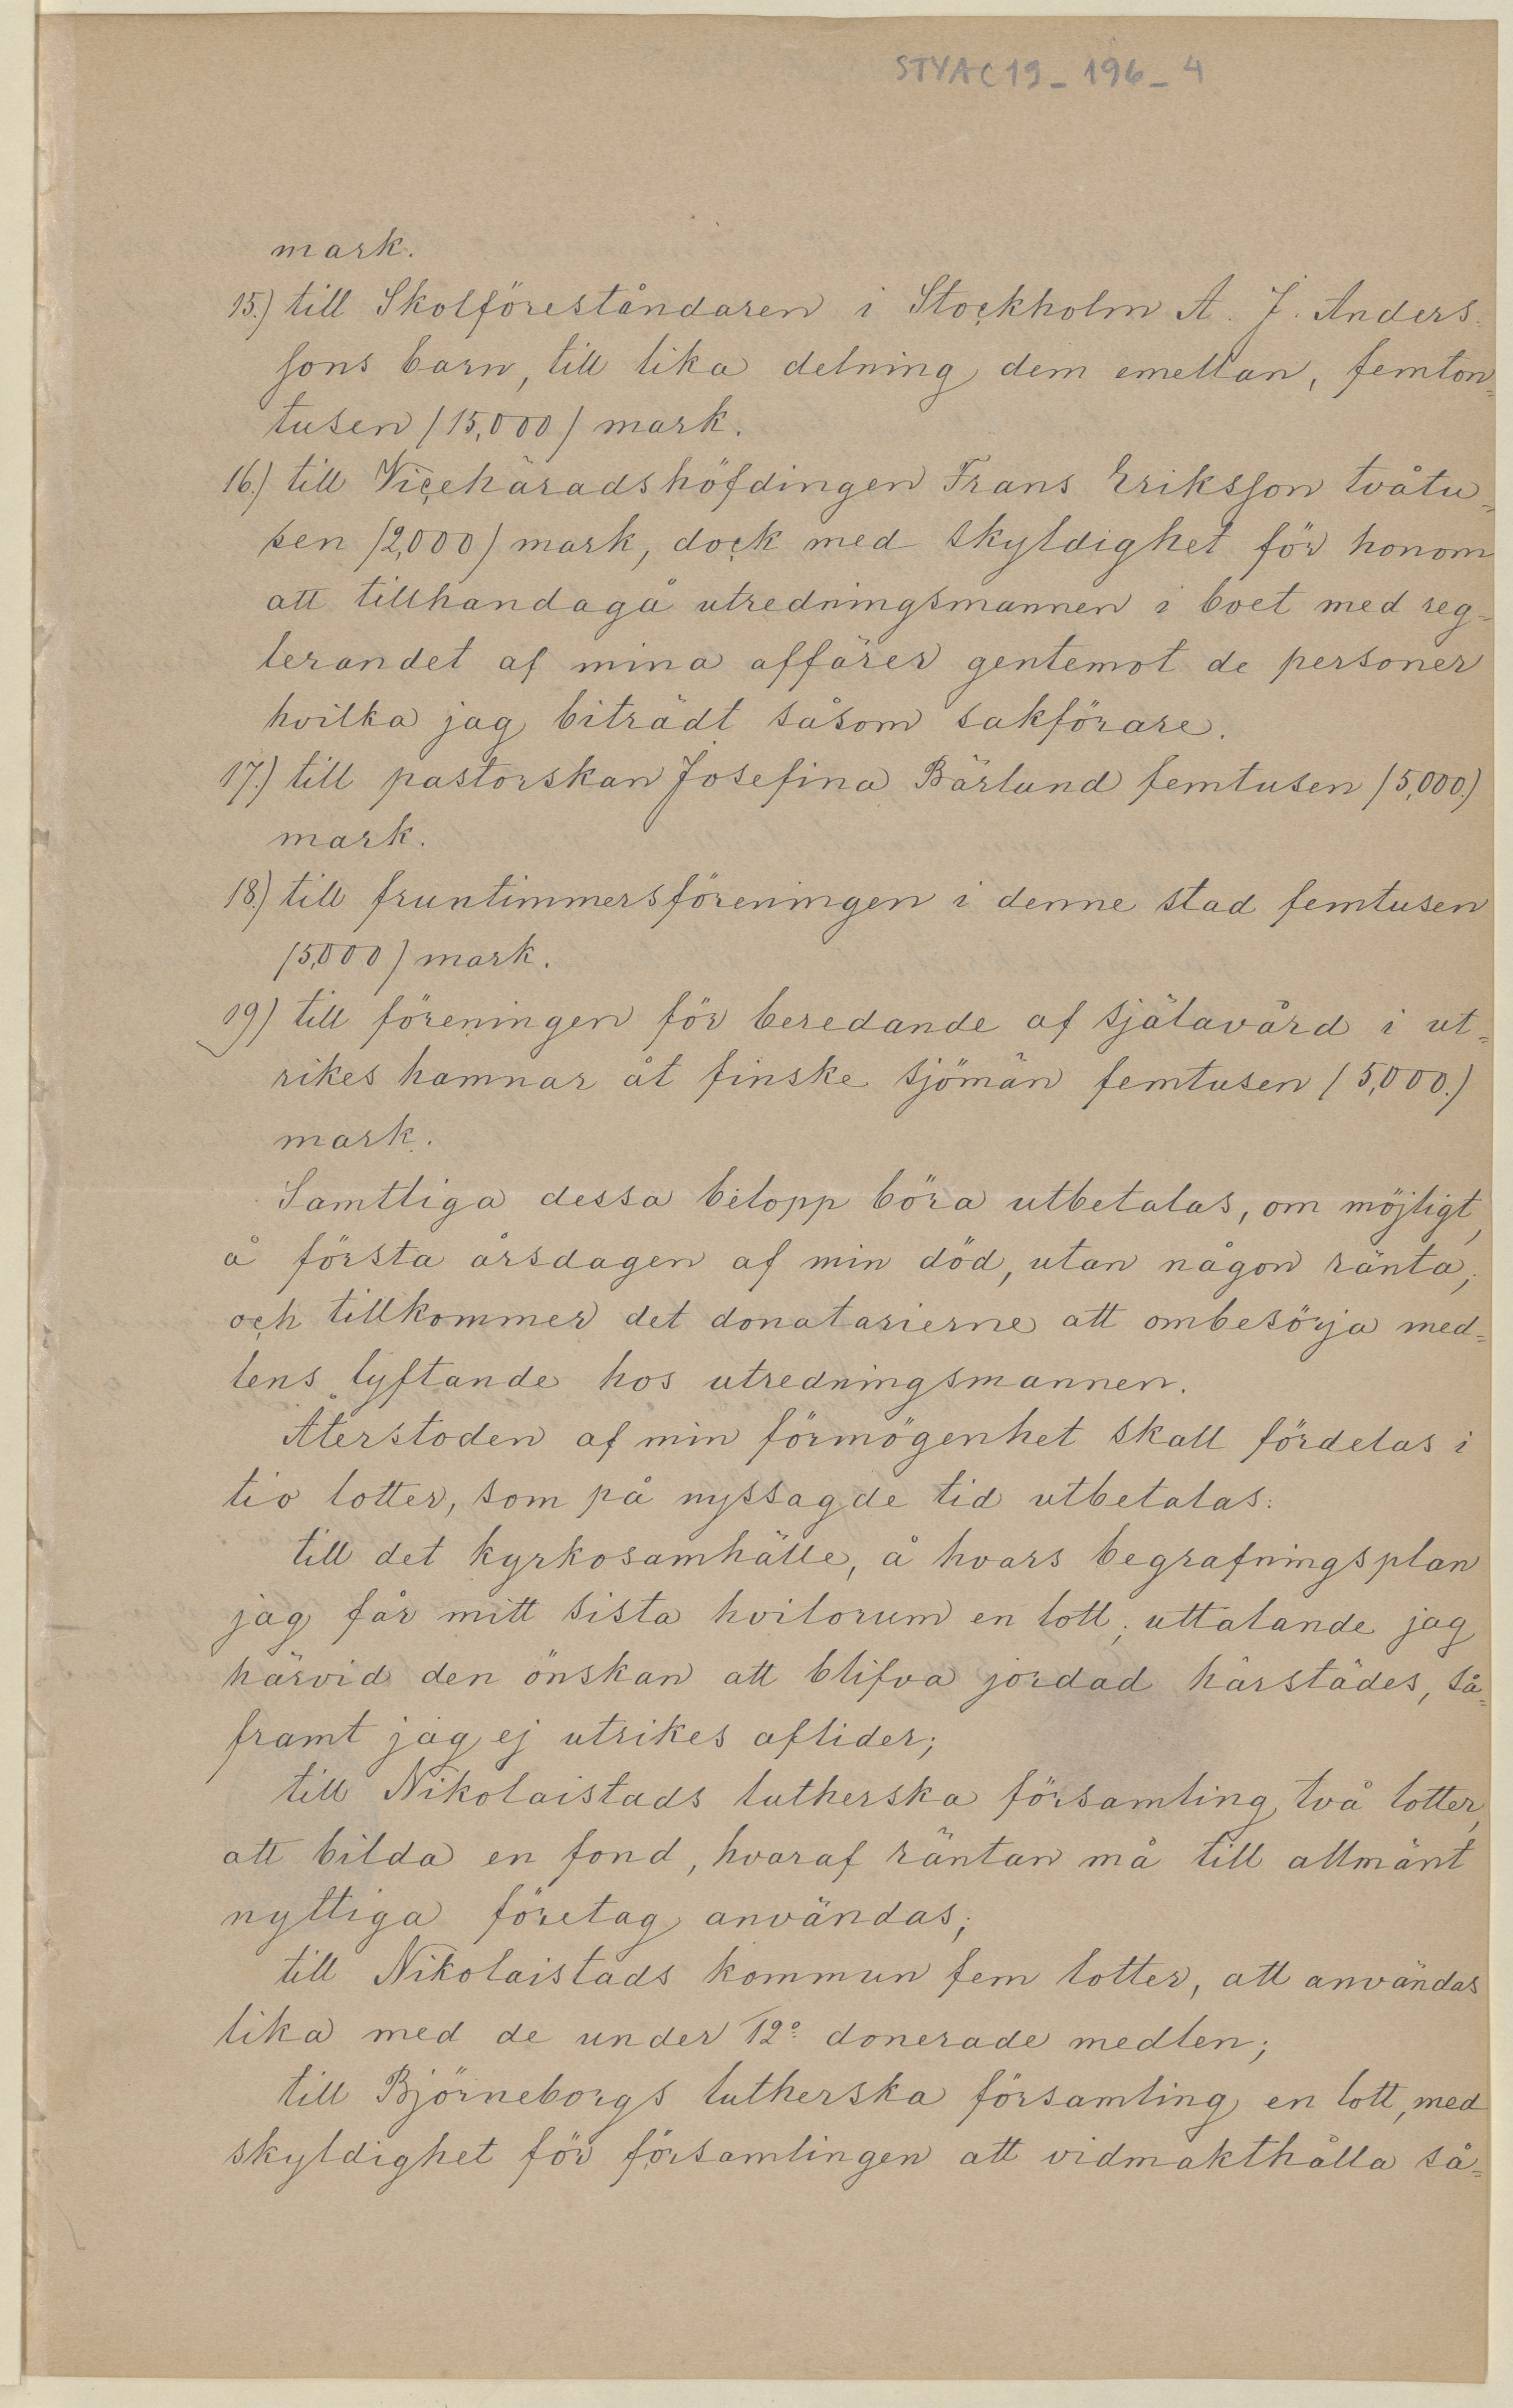 STYAC19_196_4
mark.
15.) till Skolföreståndaren i Stockholm A. J. Anders-
sons barn, till lika delning dem emellan, femton-
tusen (15,000) mark.
16.) till Vicehäradshöfdingen Frans Eriksson tvåtu-
sen (2,000) mark, dock med skyldighet för honom
att tillhandagå utredningsmannen i boet med reg-
lerandet af mina affärer gentemot de personer
hvilka jag biträdt såsom sakförare.
17.) till pastorskan Josefina Bärlund femtusen (5,000.)
mark.
18.) till fruntimmersföreningen i denne stad femtusen
(5,000) mark.
19) till föreningen för beredande af själavård i ut-
rikes hamnar åt finske sjömän femtusen (5,000.)
mark.
Samtliga dessa belopp böra utbetalas, om möjligt,
å första årsdagen af min död, utan någon ränta;
och tillkommer det donatarierne att ombesörja med-
lens lyftande hos utredningsmannen.
Återstoden af min förmögenhet skall fördelas i
tio lotter, som på nyssagde tid utbetalas:
till det kyrkosamhälle, å hvars begrafningsplan
jag får mitt sista hvilorum en lott; uttalande jag
härvid den önskan att blifva jordad härstädes, så-
framt jag ej utrikes aflider;
till Nikolaistads lutherska församling två lotter,
att bilda en fond, hvaraf räntan må till allmänt
nyttiga företag användas;
till Nikolaistads kommun fem lotter, att användas
lika med de under 12º donerade medlen;
till Björneborgs lutherska församling en lott, med
skyldighet för församlingen att vidmakthålla så-